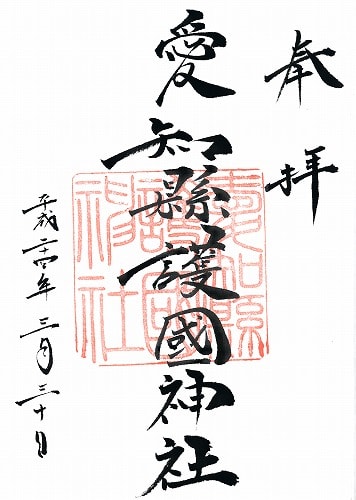 奉拝
愛知縣護國神社
愛知縣護國神社
平成二十四年三月三十日